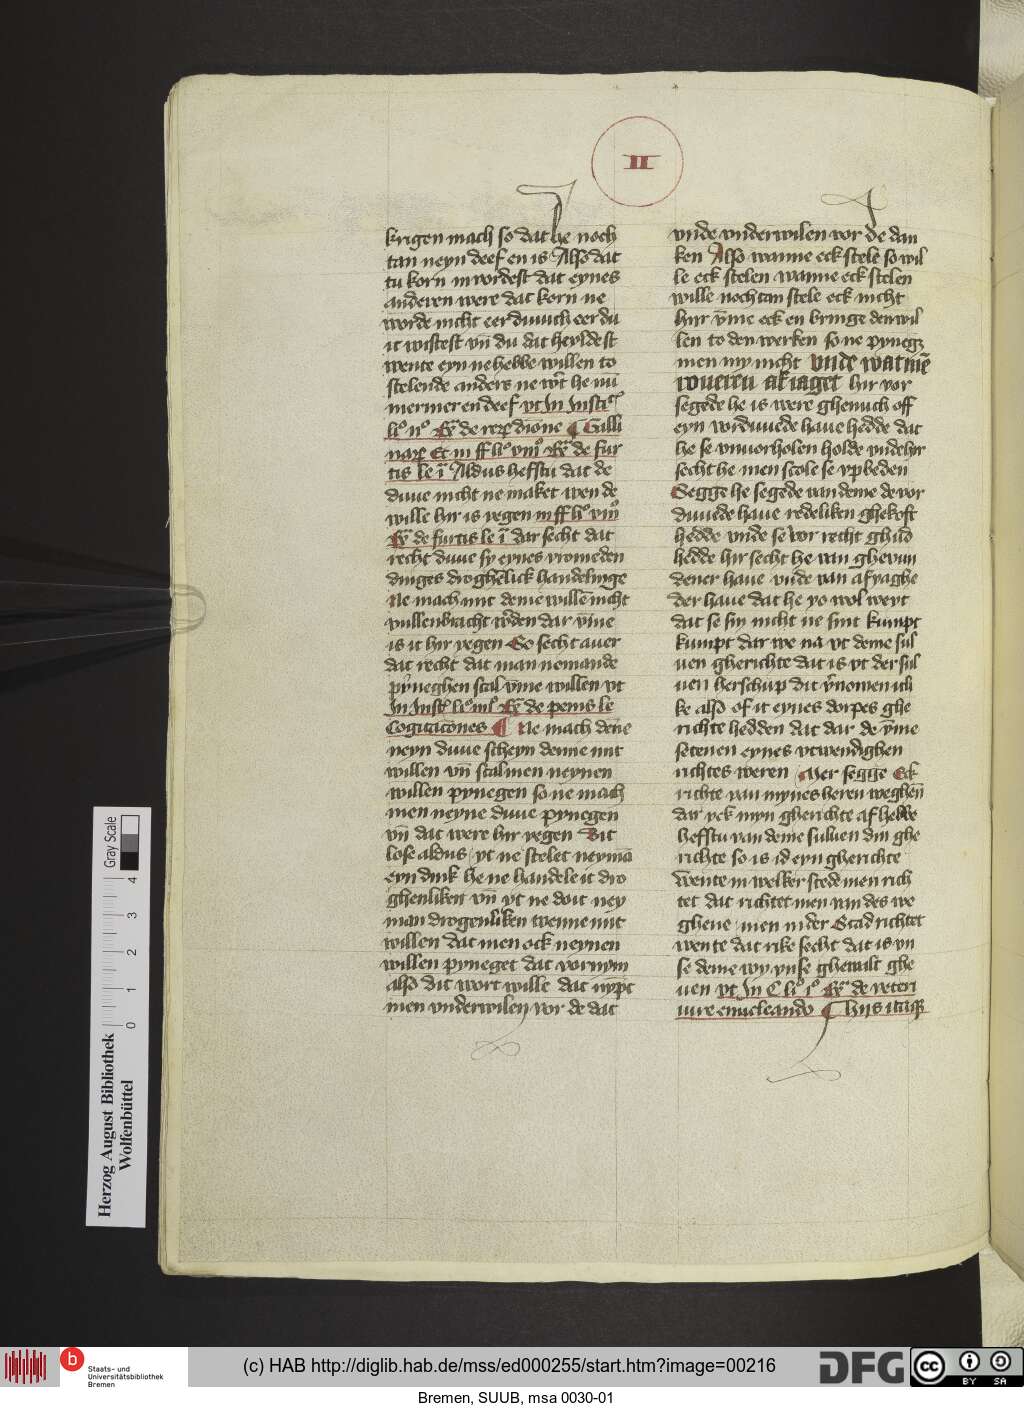 II
krigen mach so dat he noch
tan neyn deef en is Also dat
tu korn in vordest dat eynes
anderen were dat korn ne
worde nicht eer duuich eer du
it wistest vn̄ du dat heyldest
wente eyn ne hebbe willen to
stelende anders ne wert he nū
mermer en deef vt In Insti
li° ii° de rerum diuisione ¶ Galli
narum Et in ff li° viii° de fur
tis le i Aldus hefftu dat de
duue nicht ne maket wen de
wille hir is yegen in ff li° viii°
de furtis le i dar secht dat
recht duue sy eynes vromeden
dinges droghelick handelinge
Ne mach mit deme willē nicht
vullenbracht werden dar vm̄e
is it hir yegen So secht auer
dat recht dat man nemande
pyneghen scal vm̄e willen vt
In Inst li° iiii° de penis le
Cogitacōnes ¶ Ne mach dēne
neyn duue scheyn denne mit
willen vn̄ scal men neynen
willen pynegen so ne mach
men neyne duue pynegen
vn̄ dat were hir yegen Dit
lose aldus yt ne stelet neymā
eyn dink he ne handele it dro
ghenliken vn̄ yt ne doit ney
man drogenliken wenne mit
willen dat men ock neynen
willen pyneget dat vornym
also dit wort wille dat nypt
men vnderwilen vor de dat
vnde vnderwilen vor de dan
ken Also wanne eck stele so wil
le eck stelen wanne eck stelen
wille nochtan stele eck nicht
hir vm̄e eck en bringe den wil
len to den werken so ne pyneg
men my nicht vnde wat mē
duueru af iaget hir vor
segede he is were ghenuch off
eyn vorduuede haue hedde dat
he se vnuorholen holde vnde hir
secht he men scole se vpbeden
Segge he segede van deme de vor
duuede haue redeliken ghekoft
hedde vnde se vor recht ghud
hedde hir secht he van gheuun
dener haue vnde van afyaghe
der haue dat he yo wol weyt
dat se sin nicht ne sint kumpt
kumpt dar we na vt deme sul
uen gherichte dat is vt der sul
uen herschup dit vernomen ich
ke also of it eynes dorpes ghe
richte hedden dat dar de vm̄e
seten en eynes vtwendighen
richtes weren Mer segge Eck
richte van mynes heren weghen
dar yck myn gherichte af hebbe
hefftu van deme suluen din ghe
richte so is id eyn gherichte
wente in welker stede men rich
tet dat richtet men van des we
ghene men in der Stad richtet
wente dat rike secht dat is vn
se deme wy vnse ghewalt ghe
uen vt In C li° i° de veteri
iure enucleando ¶ hijs itaque
Gray Scale
4 3 2 1 0
Herzog August Bibliothek
Wolfenbüttel
b
Staats- und
Universitätsbibliothek
Bremen
(c) HAB http://diglib.hab.de/mss/ed000255/start.htm?image=00216
DFG
cc BY SA
Bremen, SUUB, msa 0030-01